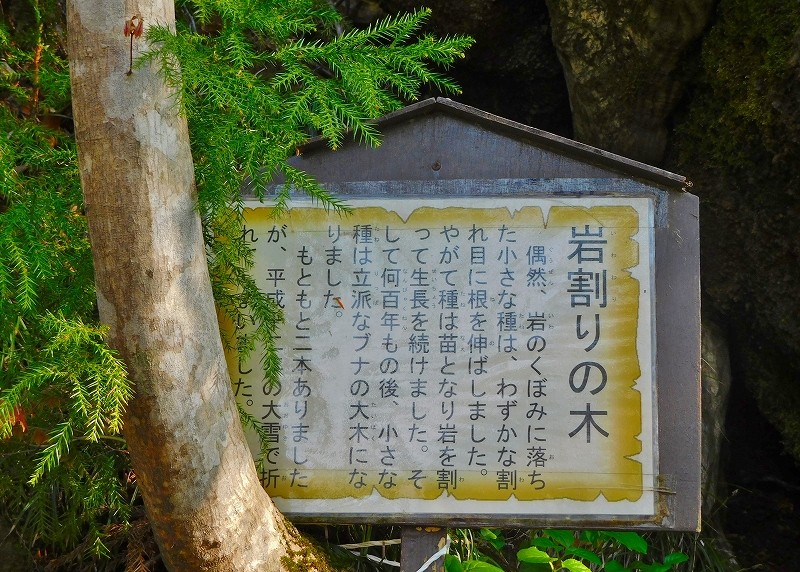 岩割りの木
偶然、岩のくぼみに落ち
た小さな種は、わずかな割
れ目に根を伸ばしました。
やがて種は苗となり岩を割
って生長を続けました。そ
して何百年もの後、小さな
種は立派なブナの大木にな
りました。
もともと二本ありました
が、平成 の大雪で折
れ ました。